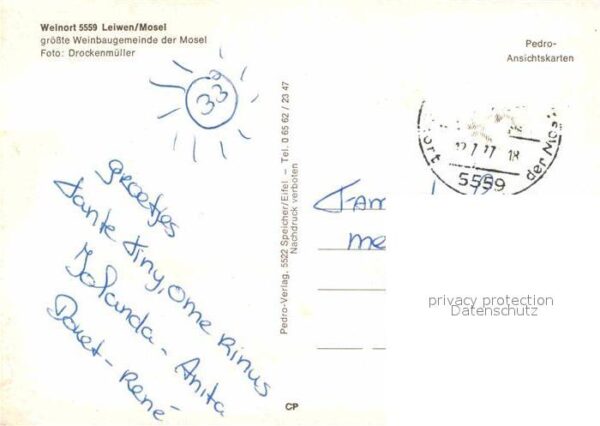 Weinort 5559 Leiwen/Mosel
größte Weinbaugemeinde der Mosel
Foto: Drockenmüller
Pedro-
Ansichtskarten
33
groetjes
tante tiny, ome Rinus
Jolanda - Anita
René
Pedro-Verlag, 5522 Speicher/Eifel - Tel. 0 65 62 / 23 47
Nachdruck verboten
ort 5559 der Mos
7.77 18
Fam
me
privacy protection
Datenschutz
CP